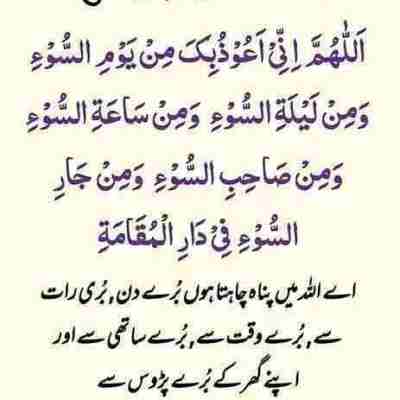 اَللّٰهُمَّ اِنِّیْ اَعُوْذُبِکَ مِنْ یَوْمِ السُّوْءِ
وَمِنْ لَیْلَةِ السُّوْءِ وَمِنْ سَاعَةِ السُّوْءِ
وَمِنْ صَاحِبِ السُّوْءِ وَمِنْ جَارِ
السُّوْءِ فِیْ دَارِ الْمُقَامَةِ
اے اللہ میں پناہ چاہتا ہوں بُرے دن, بُری رات
سے, بُرے وقت سے, بُرے ساتھی سے اور
اپنے گھر کے بُرے پڑوس سے